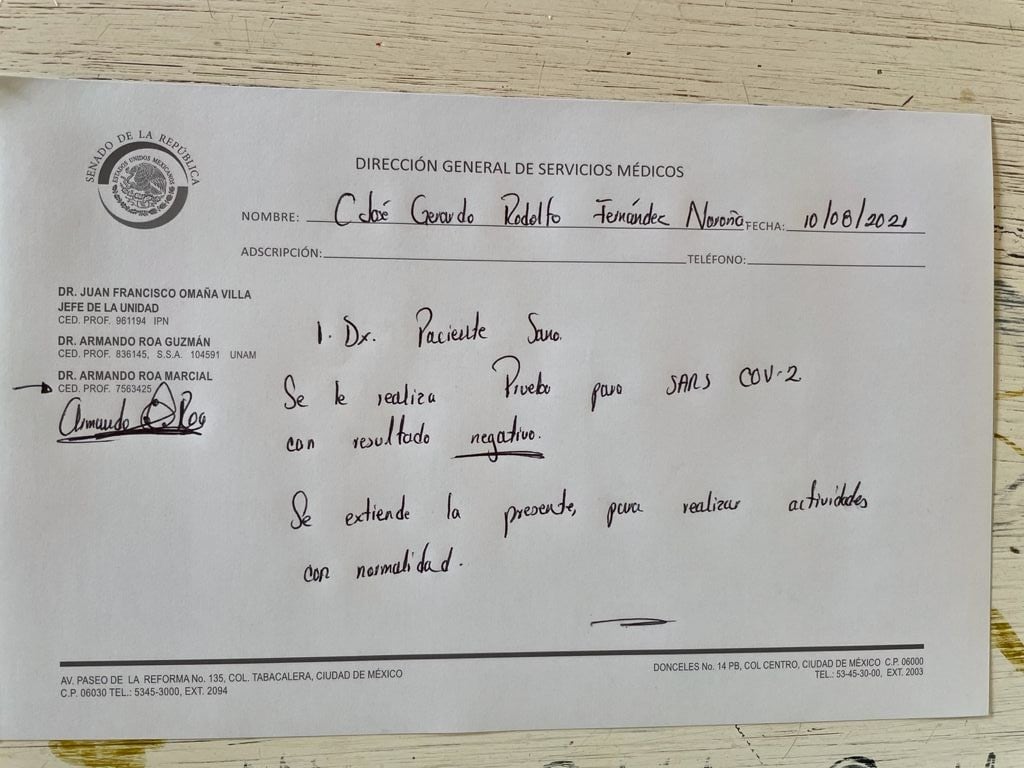 SENADO DE LA REPÚBLICA
ESTADOS UNIDOS MEXICANOS
DIRECCIÓN GENERAL DE SERVICIOS MÉDICOS
NOMBRE: C José Gerardo Rodolfo Fernández Noroña FECHA: 10/08/2021
ADSCRIPCIÓN: TELÉFONO:
DR. JUAN FRANCISCO OMAÑA VILLA
JEFE DE LA UNIDAD
CED. PROF. 961194 IPN
DR. ARMANDO ROA GUZMÁN
CED. PROF. 836145, S.S.A. 104591 UNAM
DR. ARMANDO ROA MARCIAL
CED. PROF. 7563425
Armando Roa
1. Dx. Paciente Sano.
Se le realiza Prueba para SARS COV-2
con resultado negativo.
Se extiende la presente, para realizar actividades
con normalidad.
AV. PASEO DE LA REFORMA No. 135, COL. TABACALERA, CIUDAD DE MÉXICO
C.P. 06030 TEL.: 5345-3000, EXT. 2094
DONCELES No. 14 PB, COL CENTRO, CIUDAD DE MÉXICO C.P. 06000
TEL.: 53-45-30-00, EXT. 2003